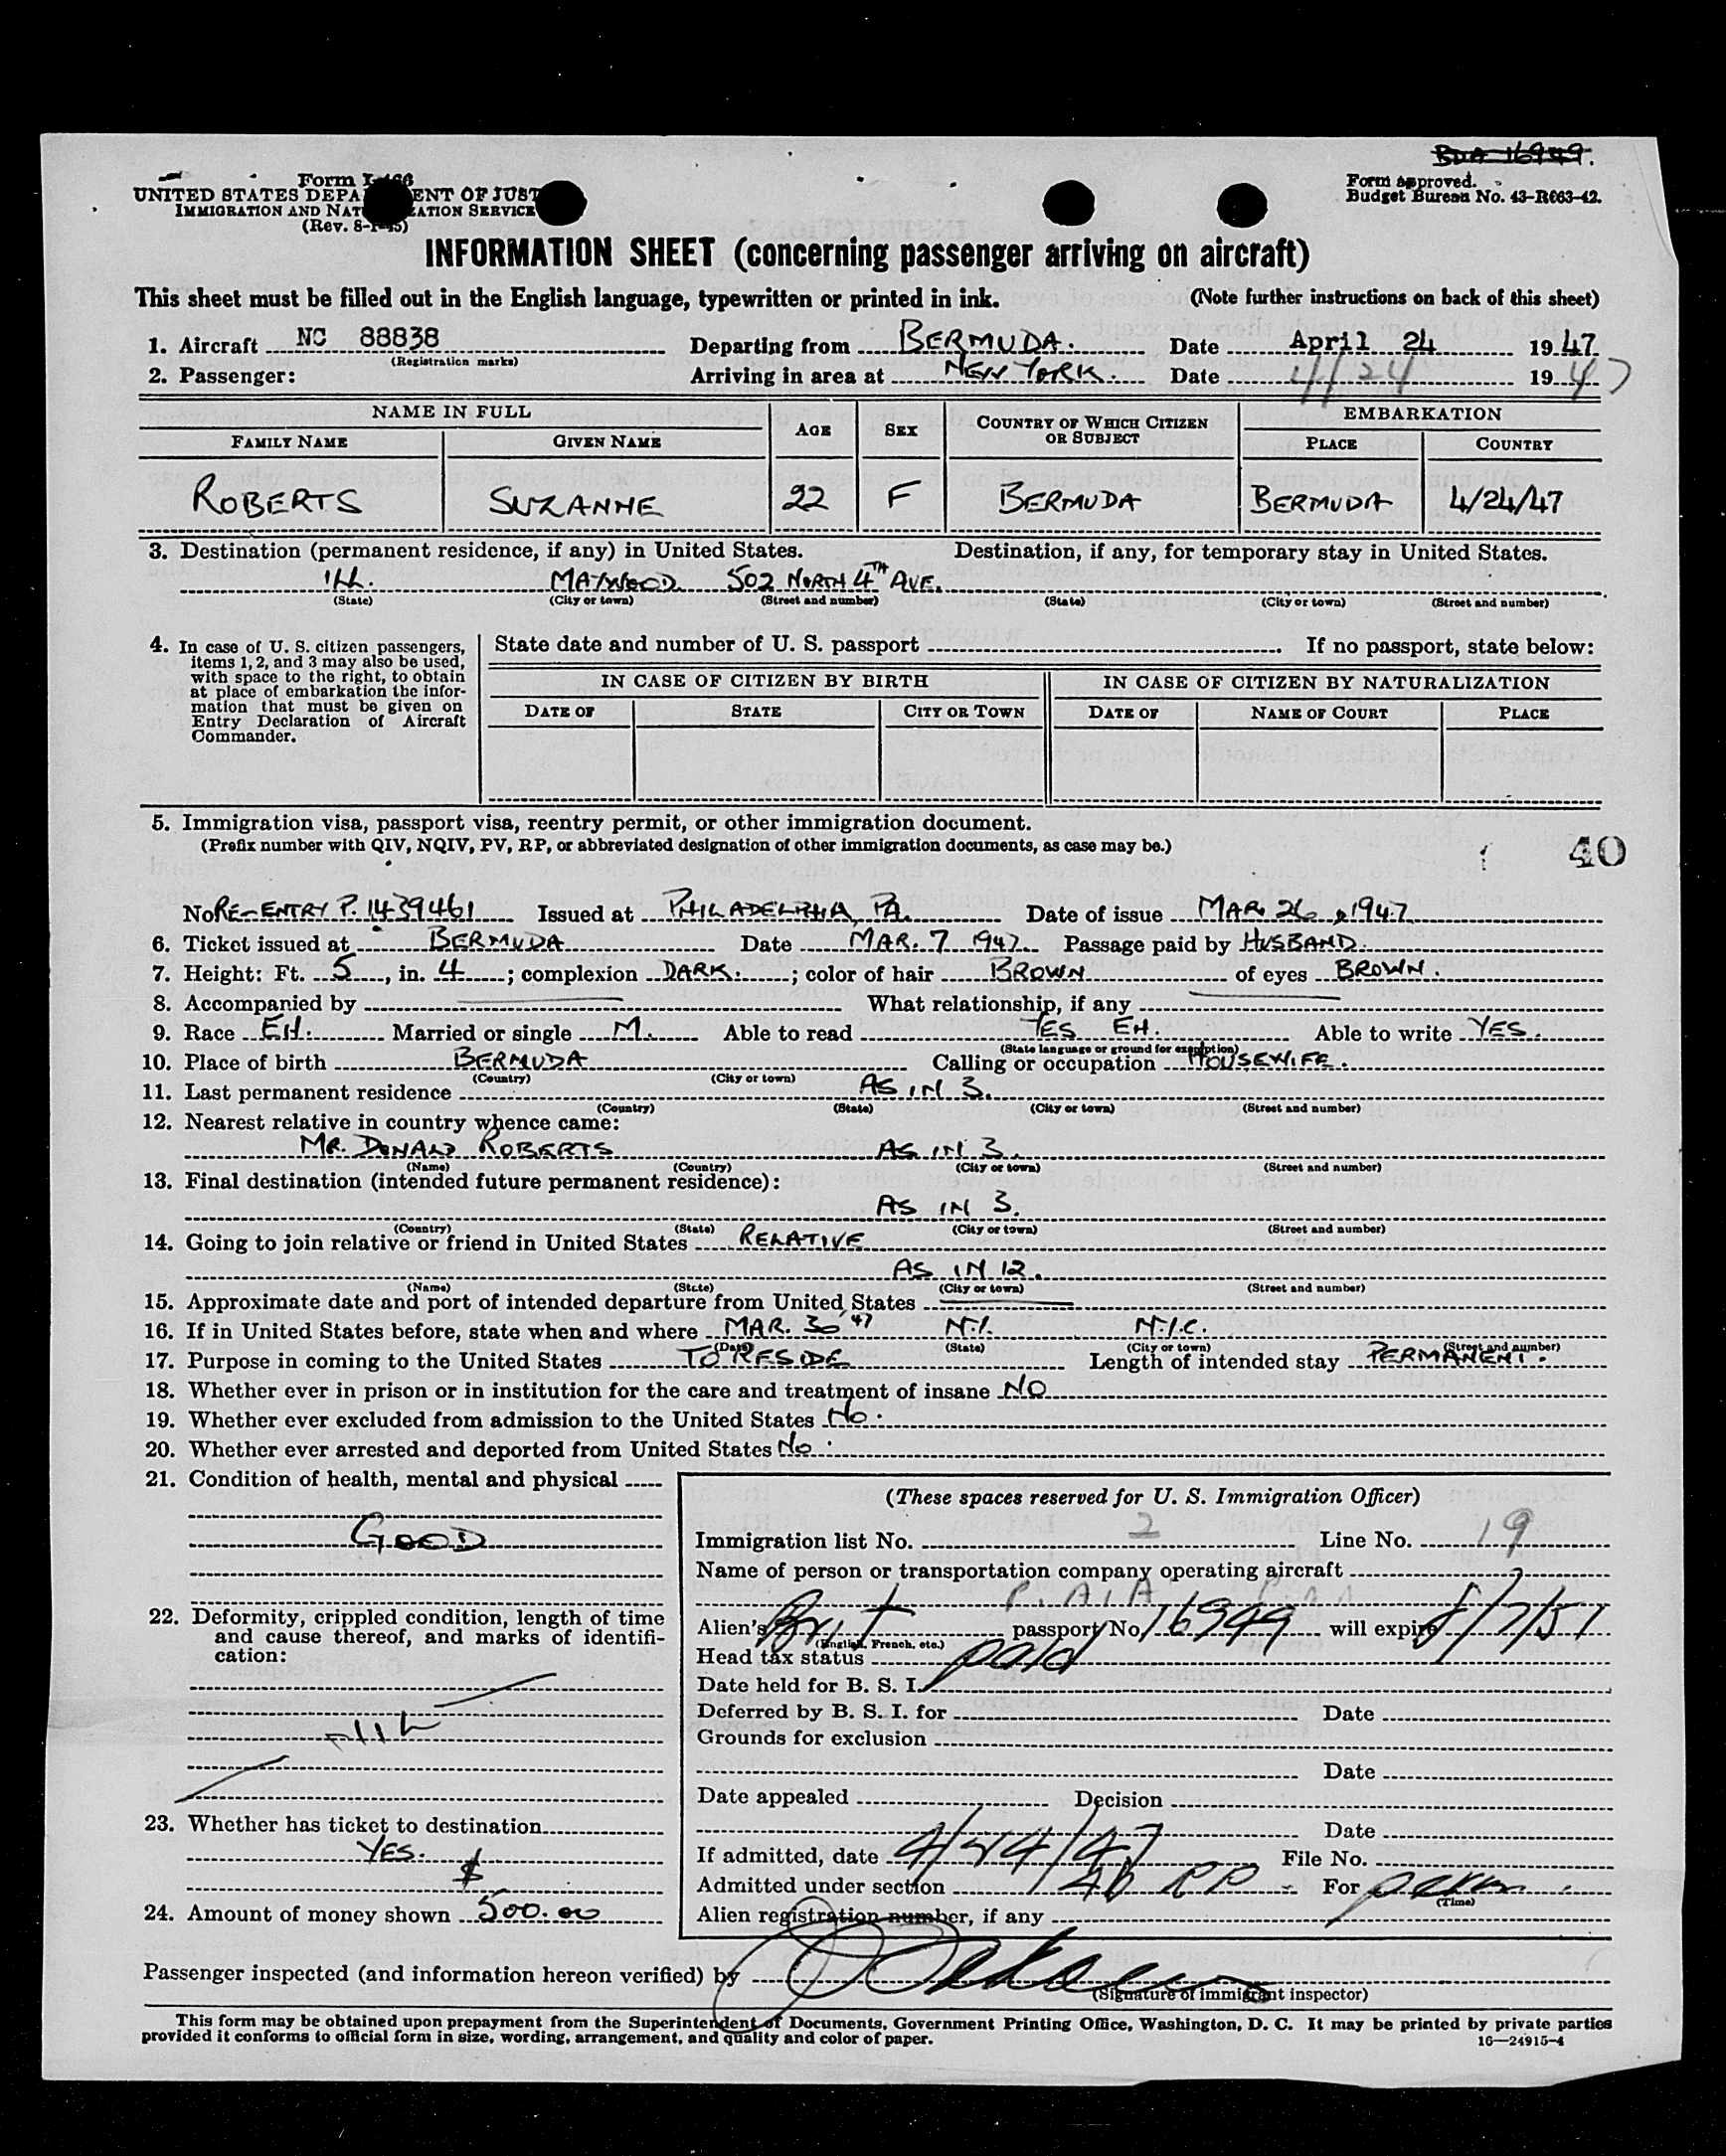 BDA 16949.
Form I-466
UNITED STATES DEPA ENT OF JUST
IMMIGRATION AND NAT ATION SERVICE
(Rev. 8-1-45)
Form approved.
Budget Bureau No. 43-R063-42.
INFORMATION SHEET (concerning passenger arriving on aircraft)
This sheet must be filled out in the English language, typewritten or printed in ink. (Note further instructions on back of this sheet)
1. Aircraft NC 88838 Departing from BERMUDA. Date April 24 1947
(Registration marks)
2. Passenger: Arriving in area at NEW YORK. Date 4/24 1947
NAME IN FULL AGE SEX COUNTRY OF WHICH CITIZEN OR SUBJECT EMBARKATION
FAMILY NAME GIVEN NAME PLACE COUNTRY
ROBERTS SUZANNE 22 F BERMUDA BERMUDA 4/24/47
3. Destination (permanent residence, if any) in United States. Destination, if any, for temporary stay in United States.
ILL. MAYWOOD 502 NORTH 4TH AVE.
(State) (City or town) (Street and number) (State) (City or town) (Street and number)
4. In case of U. S. citizen passengers, items 1, 2, and 3 may also be used, with space to the right, to obtain at place of embarkation the information that must be given on Entry Declaration of Aircraft Commander.
State date and number of U. S. passport If no passport, state below:
IN CASE OF CITIZEN BY BIRTH IN CASE OF CITIZEN BY NATURALIZATION
DATE OF STATE CITY OR TOWN DATE OF NAME OF COURT PLACE
5. Immigration visa, passport visa, reentry permit, or other immigration document.
(Prefix number with QIV, NQIV, PV, RP, or abbreviated designation of other immigration documents, as case may be.)
40
No RE-ENTRY P. 1439461 Issued at PHILADELPHIA, PA. Date of issue MAR 26, 1947
6. Ticket issued at BERMUDA Date MAR. 7 1947. Passage paid by HUSBAND.
7. Height: Ft. 5, in. 4; complexion DARK.; color of hair BROWN of eyes BROWN.
8. Accompanied by What relationship, if any
9. Race EH. Married or single M. Able to read YES EH. Able to write YES.
(State language or ground for exemption)
10. Place of birth BERMUDA Calling or occupation HOUSEWIFE.
(Country) (City or town)
11. Last permanent residence AS IN 3.
(Country) (State) (City or town) (Street and number)
12. Nearest relative in country whence came:
MR. DONALD ROBERTS AS IN 3.
(Name) (Country) (City or town) (Street and number)
13. Final destination (intended future permanent residence):
AS IN 3.
(Country) (State) (City or town) (Street and number)
14. Going to join relative or friend in United States RELATIVE
AS IN 12.
(Name) (State) (City or town) (Street and number)
15. Approximate date and port of intended departure from United States
16. If in United States before, state when and where MAR. 30 '47 N.Y. N.Y.C.
(Date) (State) (City or town) (Street and number)
17. Purpose in coming to the United States TO RESIDE Length of intended stay PERMANENT.
18. Whether ever in prison or in institution for the care and treatment of insane NO
19. Whether ever excluded from admission to the United States No.
20. Whether ever arrested and deported from United States No.
21. Condition of health, mental and physical
GOOD
22. Deformity, crippled condition, length of time and cause thereof, and marks of identification:
23. Whether has ticket to destination
YES.
24. Amount of money shown $ 500.00
(These spaces reserved for U. S. Immigration Officer)
Immigration list No. 2 Line No. 19
Name of person or transportation company operating aircraft
P. A. A.
Alien's Brit passport No. 16949 will expire 8/7/51
(English, French, etc.)
Head tax status paid
Date held for B. S. I.
Deferred by B. S. I. for Date
Grounds for exclusion
Date
Date appealed Decision
Date
If admitted, date 4/24/47 File No.
Admitted under section 4b RP For perm.
(Time)
Alien registration number, if any
Passenger inspected (and information hereon verified) by
(Signature of immigrant inspector)
This form may be obtained upon prepayment from the Superintendent of Documents, Government Printing Office, Washington, D. C. It may be printed by private parties
provided it conforms to official form in size, wording, arrangement, and quality and color of paper. 16—24915-4